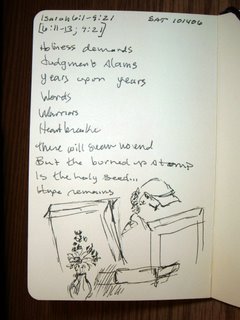 Isaiah 6:1-9:21 SAT 101406
[6:11-13; 9:21]
Holiness demands
Judgment slams
years upon years
Words
Warriors
Heartbreake
There will seem no end
But the burned up stomp
Is the holy seed...
Hope remains